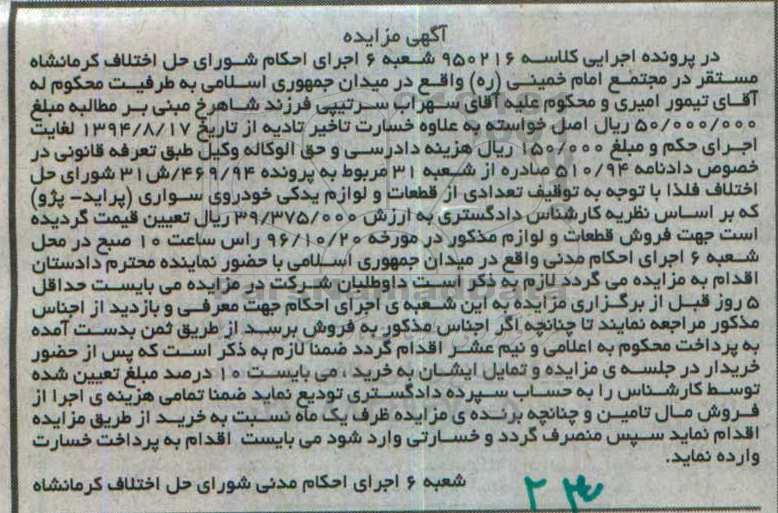 آگهی مزایده
در پرونده اجرایی کلاسه ۹۵۰۲۱۶ شعبه ۶ اجرای احکام شورای حل اختلاف کرمانشاه
مستقر در مجتمع امام خمینی (ره) واقع در میدان جمهوری اسلامی به طرفیت محکوم له
آقای تیمور امیری و محکوم علیه آقای سهراب سرتیپی فرزند شاهرخ مبنی بر مطالبه مبلغ
۵۰/۰۰۰/۰۰۰ ریال اصل خواسته به علاوه خسارت تاخیر تادیه از تاریخ ۱۳۹۴/۸/۱۷ لغایت
اجرای حکم و مبلغ ۱۵۰/۰۰۰ ریال هزینه دادرسی و حق الوکاله وکیل طبق تعرفه قانونی در
خصوص دادنامه ۵۱۰/۹۴ صادره از شعبه ۳۱ مربوط به پرونده ۴۶۹/۹۴/ش۳۱ شورای حل
اختلاف فلذا با توجه به توقیف تعدادی از قطعات و لوازم یدکی خودروی سواری (پراید- پژو)
که بر اساس نظریه کارشناس دادگستری به ارزش ۳۹/۳۷۵/۰۰۰ ریال تعیین قیمت گردیده
است جهت فروش قطعات و لوازم مذکور در مورخه ۹۶/۱۰/۲۰ راس ساعت ۱۰ صبح در محل
شعبه ۶ اجرای احکام مدنی واقع در میدان جمهوری اسلامی با حضور نماینده محترم دادستان
اقدام به مزایده می گردد لازم به ذکر است داوطلبان شرکت در مزایده می بایست حداقل
۵ روز قبل از برگزاری مزایده به این شعبه ی اجرای احکام جهت معرفی و بازدید از اجناس
مذکور مراجعه نمایند تا چنانچه اگر اجناس مذکور به فروش برسد از طریق ثمن بدست آمده
به پرداخت محکوم به اعلامی و نیم عشر اقدام گردد ضمنا لازم به ذکر است که پس از حضور
خریدار در جلسه ی مزایده و تمایل ایشان به خرید ، می بایست ۱۰ درصد مبلغ تعیین شده
توسط کارشناس را به حساب سپرده دادگستری تودیع نماید ضمنا تمامی هزینه ی اجرا از
فروش مال تامین و چنانچه برنده ی مزایده ظرف یک ماه نسبت به خرید از طریق مزایده
اقدام نماید سپس منصرف گردد و خسارتی وارد شود می بایست اقدام به پرداخت خسارت
وارده نماید.
شعبه ۶ اجرای احکام مدنی شورای حل اختلاف کرمانشاه